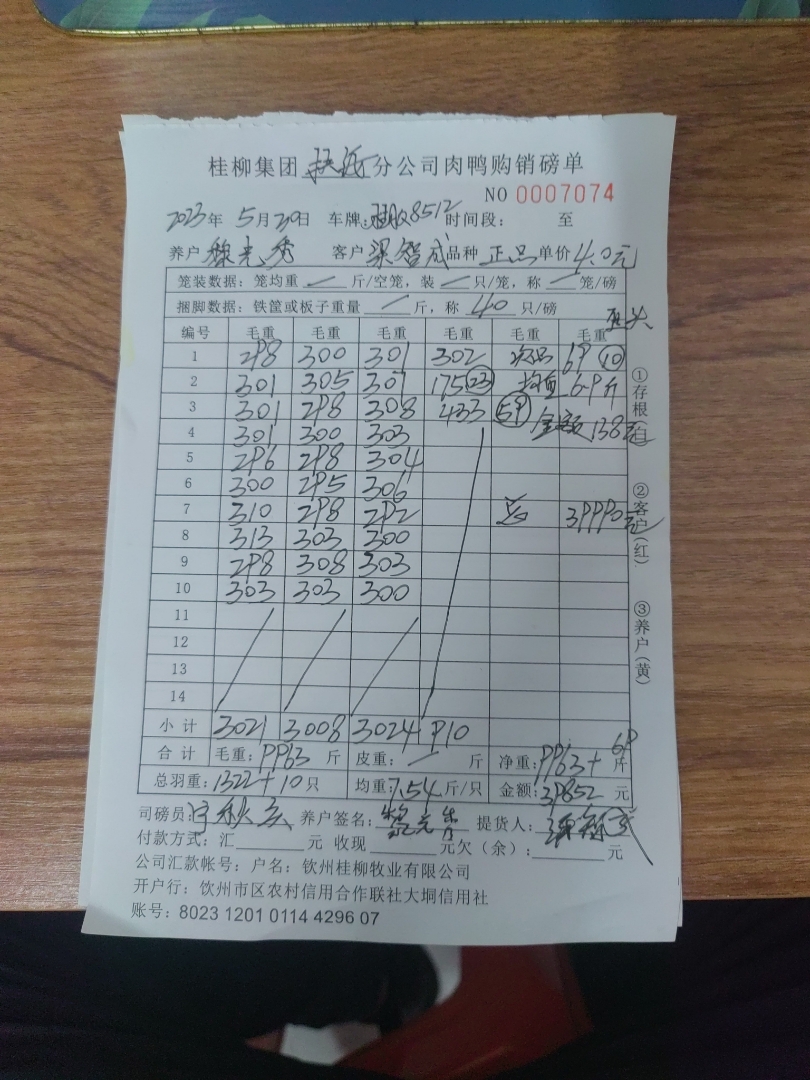 桂柳集团 分公司肉鸭购销磅单
NO 0007074
2023年 5月20日 车牌: 8512 时间段: 至
养户 客户 梁智成 品种 正品 单价 4.0元
笼装数据: 笼均重 / 斤/空笼, 装 / 只/笼, 称 / 笼/磅
捆脚数据: 铁筐或板子重量 / 斤, 称 40 只/磅
编号 毛重 毛重 毛重 毛重 毛重 毛重
1 298 300 301 302 次品 69 (10)
2 301 305 307 175(23) 均重 6.9斤
3 301 298 308 433 (59) 金额 138元
4 301 300 303
5 296 298 304
6 300 295 306
7 310 298 292 总 39990元
8 313 303 300
9 298 308 303
10 303 303 300
11
12
13
14
小计 3021 3008 3024 910
合计 毛重: 9963 斤 皮重: / 斤 净重: 9963+69 斤
总羽重: 1322+10只 均重: 7.54斤/只 金额: 39852 元
司磅员: 养户签名: 提货人:
付款方式: 汇 元 收现 元欠(余): 元
公司汇款帐号: 户名: 钦州桂柳牧业有限公司
开户行: 钦州市区农村信用合作联社大垌信用社
账号: 8023 1201 0114 4296 07
①存根(白)
②客户(红)
③养户(黄)